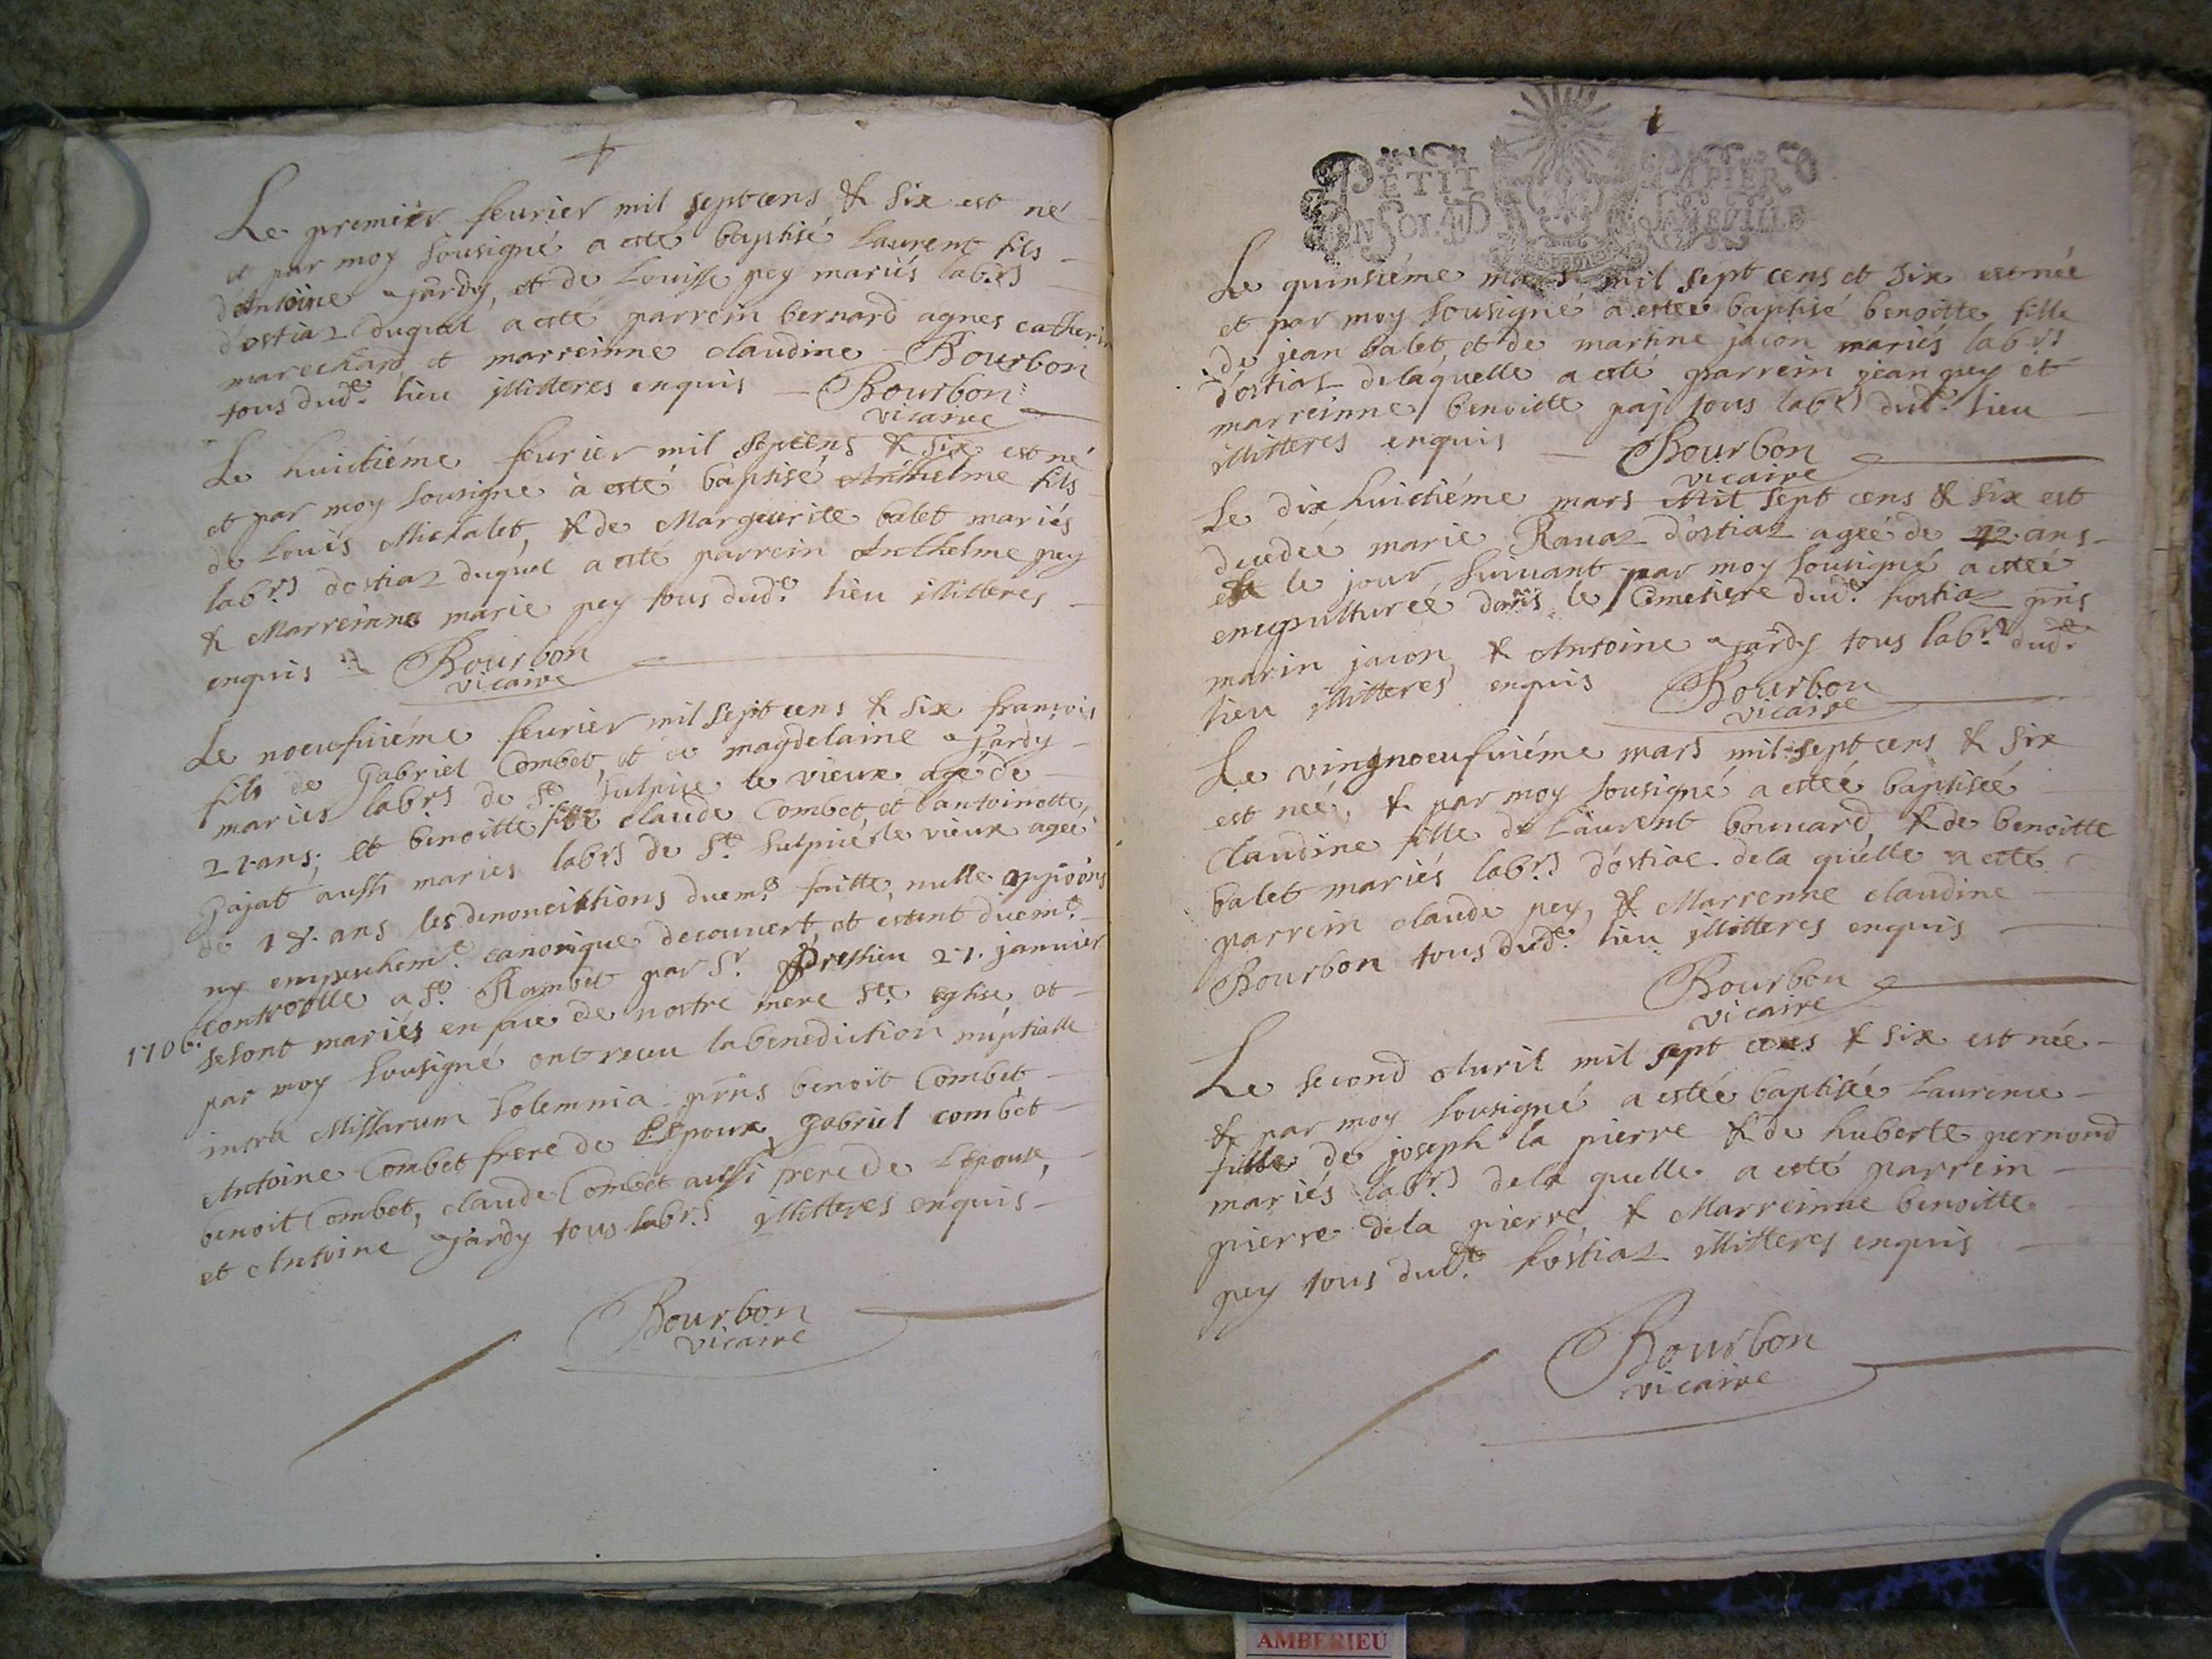 Le premier feurier mil septcens & six est né
et par moy sousigné a esté baptisé Laurent fils
d'Antoine jardy, et de Louisse pey mariés lab.rs
d'ostiaz duquel a esté parrein bernard agnes catherin
marechand et marreinne claudine Bourbon
tous dud.t lieu illitteres enquis Bourbon
vicaire
Le huictiéme feurier mil septcens & six est né
et par moy sousigné à esté baptisé Anthelme fils
de Louis Michalet, & de Margeurite balet mariés
lab.rs dostiaz duquel a esté parrein Anthelme pey
& Marreinne marie pey tous dud.t lieu illitteres
enquis Bourbon
vicaire
Le noeufuiéme feurier mil sept cens & six françois
fils de Gabriel Combet, et de magdelaine jardy
mariés lab.rs de S.t Sulpice le vieux agé de
27. ans; et benoitte fille claude Combet, et d'antoinette
Gajat aussi mariés lab.rs de S.t Sulpice le vieux ageé
de 18. ans les denonciations duem.t faitte, nulle
ny empeschem.t canonique decouvert, et estent duem.t
controolle a S.t Rambet par S.r Pressieu 27. januier
1706. se sont mariés en face de nostre mere S.te eglise et
par moy sousigné ont receu la benediction nuptialle
intra Missarum Solemnia pñs benoit Combet
Antoine Combet frere de L'Epoux, Gabriel combet
benoit Combet, claude Combet aussi frere de L'Epouse,
et Antoine jardy tous lab.rs illitteres enquis
Bourbon
vicaire
PETIT PAPIER
UN SOL 4 D IANEVILLE
Le quinsiéme mars mil sept cens et six est née
et par moy sousigné a esteé baptisé benoitte fille
de jean balet, et de martine jacon mariés lab.rs
d'ostiaz delaquelle a esté parrein jean pey et
marreinne benoitte paj tous lab.rs dud.t lieu
illitteres enquis Bourbon
vicaire
Le dix huictiéme mars Mil sept cens & six est
decedeé marie Rauaz d'ostiaz ageé de 72. ans
et le jour suruant par moy sousigné a esteé
ensepulturee dans le Cimetiere dud.t hostiaz pñs
marin jacon & Antoine jardy tous lab.rs dud.t
lieu illitteres enquis Bourbon
vicaire
Le vingnoeufuiéme mars mil sept cens & six
est neé, & par moy sousigné a esteé baptiseé
Claudine fille de Laurent bouuard, & de benoitte
balet mariés lab.rs d'ostiaz dela quelle a esté
parrein claude pey, & Marrenne claudine
Bourbon tous dud.t lieu illitteres enquis
Bourbon
vicaire
Le second Auril mil sept cens & six est née
& par moy sousigné a esteé baptisée Laurence
fille de joseph la pierre & de huberte pernond
mariés lab.rs dela quelle a esté parrein
pierre dela pierre & Marreinne benoitte
pey tous dud.t hostiaz illitteres enquis
Bourbon
vicaire
AMBERIEU